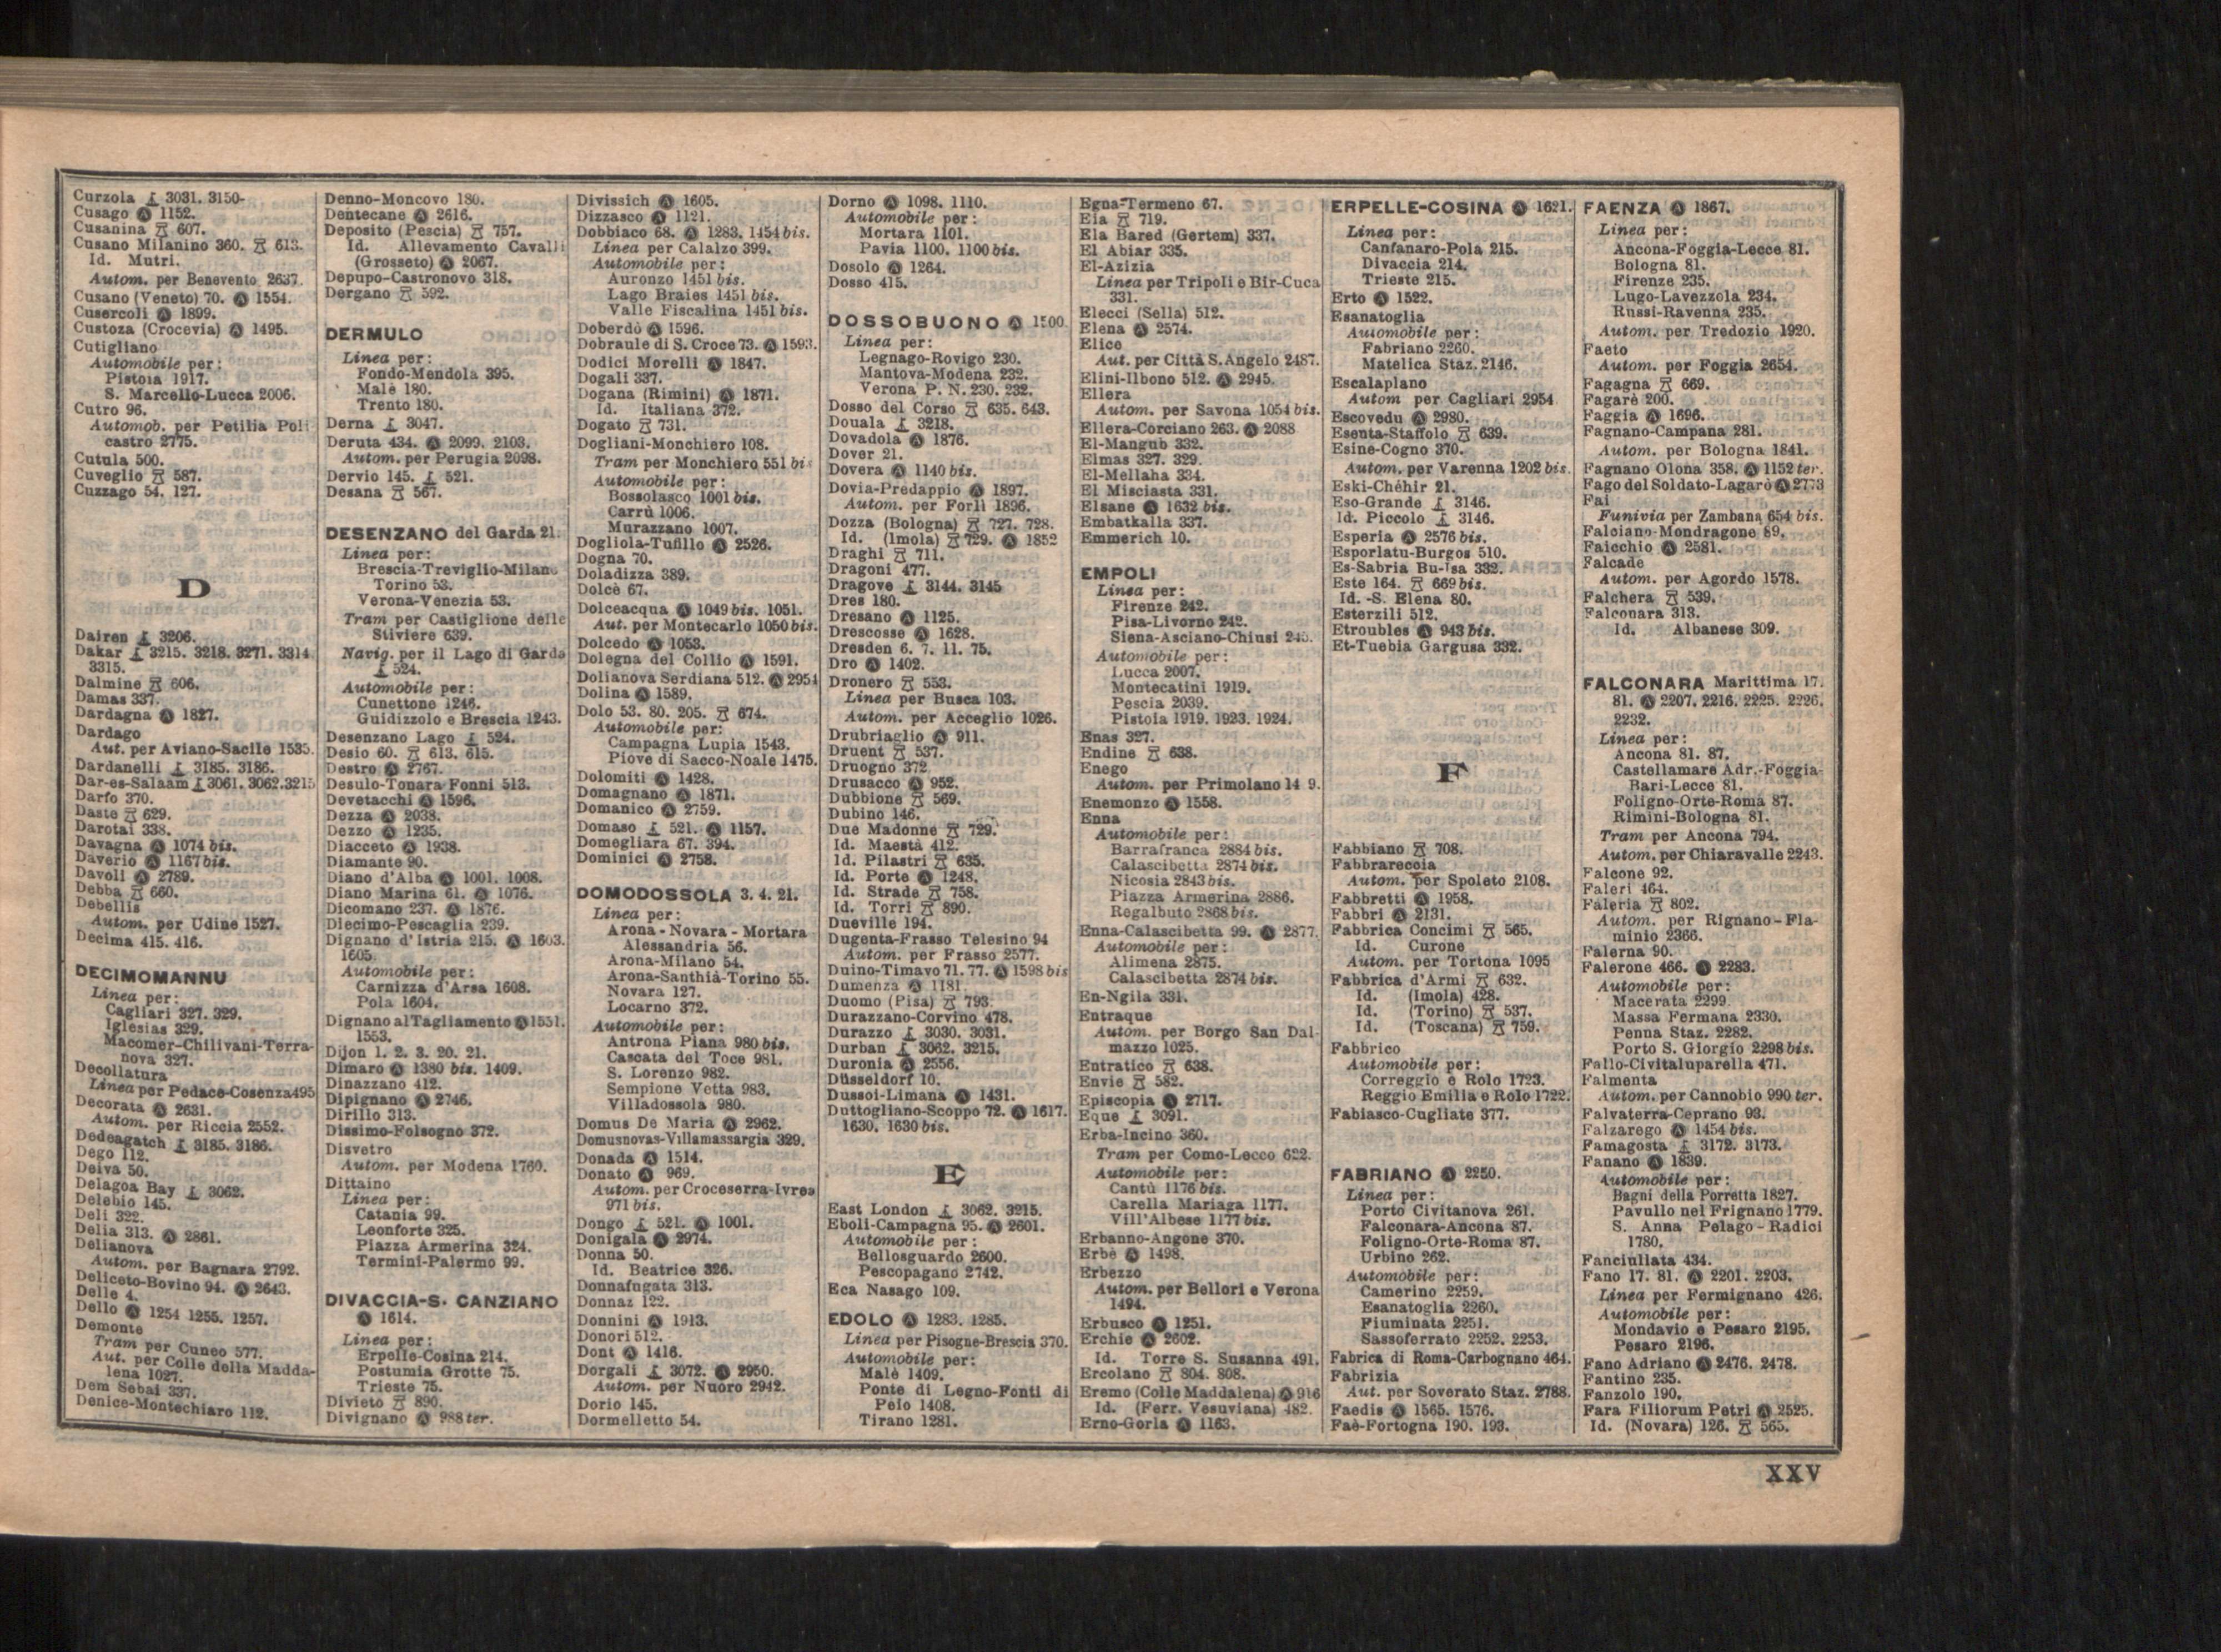 Curzola 3031. 3150-
Cusago Ⓐ 1152.
Cusanina 607.
Cusano Milanino 360. 613.
Id. Mutri.
Autom. per Benevento 2637.
Cusano (Veneto) 70. Ⓐ 1554.
Cusercoli Ⓐ 1899.
Custoza (Crocevia) Ⓐ 1495.
Cutigliano
Automobile per:
Pistoia 1917.
S. Marcello-Lucca 2006.
Cutro 96.
Automob. per Petilia Poli
castro 2775.
Cutula 500.
Cuveglio 587.
Cuzzago 54. 127.
D
Dairen 3206.
Dakar 3215. 3218. 3271. 3314
3315.
Dalmine 606.
Damas 337.
Dardagna Ⓐ 1827.
Dardago
Aut. per Aviano-Sacile 1535.
Dardanelli 3185. 3186.
Dar-es-Salaam 3061. 3062. 3215
Darfo 370.
Daste 629.
Darotai 338.
Davagna Ⓐ 1074 bis.
Daverio Ⓐ 1167 bis.
Davoli Ⓐ 2789.
Debba 660.
Debellis
Autom. per Udine 1527.
Decima 415. 416.
DECIMOMANNU
Linea per:
Cagliari 327. 329.
Iglesias 329.
Macomer-Chilivani-Terra-
nova 327.
Decollatura
Linea per Pedace-Cosenza 495
Decorata Ⓐ 2631.
Autom. per Riccia 2552.
Dedeagatch 3185. 3186.
Dego 112.
Deiva 50.
Delagoa Bay 3062.
Delebio 145.
Deli 322.
Delia 313. Ⓐ 2861.
Delianova
Autom. per Bagnara 2792.
Deliceto-Bovino 94. Ⓐ 2643.
Delle 4.
Dello Ⓐ 1254 1255. 1257.
Demonte
Tram per Cuneo 577.
Aut. per Colle della Madda-
lena 1027.
Dem Sebai 337.
Denice-Montechiaro 112.
Denno-Moncovo 180.
Dentecane Ⓐ 2616.
Deposito (Pescia) 757.
Id. Allevamento Cavalli
(Grosseto) Ⓐ 2067.
Depupo-Castronovo 318.
Dergano 592.
DERMULO
Linea per:
Fondo-Mendola 395.
Malè 180.
Trento 180.
Derna 3047.
Deruta 434. Ⓐ 2099. 2103.
Autom. per Perugia 2098.
Dervio 145. 521.
Desana 567.
DESENZANO del Garda 21.
Linea per:
Brescia-Treviglio-Milano
Torino 53.
Verona-Venezia 53.
Tram per Castiglione delle
Stiviere 639.
Navig. per il Lago di Garda
524.
Automobile per:
Cunettone 1246.
Guidizzolo e Brescia 1243.
Desenzano Lago 524.
Desio 60. 613. 615.
Destro Ⓐ 2767.
Desulo-Tonara-Fonni 513.
Devetacchi Ⓐ 1596.
Dezza Ⓐ 2038.
Dezzo Ⓐ 1235.
Diacceto Ⓐ 1938.
Diamante 90.
Diano d'Alba Ⓐ 1001. 1008.
Diano Marina 61. Ⓐ 1076.
Dicomano 237. Ⓐ 1876.
Diecimo-Pescaglia 239.
Dignano d'Istria 215. Ⓐ 1603.
1605.
Automobile per:
Carnizza d'Arsa 1608.
Pola 1604.
Dignano al Tagliamento Ⓐ 1551.
1553.
Dijon 1. 2. 3. 20. 21.
Dimaro Ⓐ 1380 bis. 1409.
Dinazzano 412.
Dipignano Ⓐ 2746.
Dirillo 313.
Dissimo-Folsogno 372.
Disvetro
Autom. per Modena 1760.
Dittaino
Linea per:
Catania 99.
Leonforte 325.
Piazza Armerina 324.
Termini-Palermo 99.
DIVACCIA-S. CANZIANO
Ⓐ 1614.
Linea per:
Erpelle-Cosina 214.
Postumia Grotte 75.
Trieste 75.
Divieto 890.
Divignano Ⓐ 988 ter.
Divissich Ⓐ 1605.
Dizzasco Ⓐ 1121.
Dobbiaco 68. Ⓐ 1283. 1454 bis.
Linea per Calalzo 399.
Automobile per:
Auronzo 1451 bis.
Lago Braies 1451 bis.
Valle Fiscalina 1451 bis.
Doberdò Ⓐ 1596.
Dobraule di S. Croce 73. Ⓐ 1593.
Dodici Morelli Ⓐ 1847.
Dogali 337.
Dogana (Rimini) Ⓐ 1871.
Id. Italiana 372.
Dogato 731.
Dogliani-Monchiero 108.
Tram per Monchiero 551 bis
Automobile per:
Bossolasco 1001 bis.
Carrù 1006.
Murazzano 1007.
Dogliola-Tufillo Ⓐ 2526.
Dogna 70.
Doladizza 389.
Dolcè 67.
Dolceacqua Ⓐ 1049 bis. 1051.
Aut. per Montecarlo 1050 bis.
Dolcedo Ⓐ 1053.
Dolegna del Collio Ⓐ 1591.
Dolianova Serdiana 512. Ⓐ 2954
Dolina Ⓐ 1589.
Dolo 53. 80. 205. 674.
Automobile per:
Campagna Lupia 1543.
Piove di Sacco-Noale 1475.
Dolomiti Ⓐ 1428.
Domagnano Ⓐ 1871.
Domanico Ⓐ 2759.
Domaso 521. Ⓐ 1157.
Domegliara 67. 394.
Dominici Ⓐ 2758.
DOMODOSSOLA 3. 4. 21.
Linea per:
Arona - Novara - Mortara
Alessandria 56.
Arona-Milano 54.
Arona-Santhià-Torino 55.
Novara 127.
Locarno 372.
Automobile per:
Antrona Piana 980 bis.
Cascata del Toce 981.
S. Lorenzo 982.
Sempione Vetta 983.
Villadossola 980.
Domus De Maria Ⓐ 2962.
Domusnovas-Villamassargia 329.
Donada Ⓐ 1514.
Donato Ⓐ 969.
Autom. per Croceserra-Ivrea
971 bis.
Dongo 521. Ⓐ 1001.
Donigala Ⓐ 2974.
Donna 50.
Id. Beatrice 326.
Donnafugata 313.
Donnaz 122.
Donnini Ⓐ 1913.
Donori 512.
Dont Ⓐ 1416.
Dorgali 3072. Ⓐ 2950.
Autom. per Nuoro 2942.
Dorio 145.
Dormelletto 54.
Dorno Ⓐ 1098. 1110.
Automobile per:
Mortara 1101.
Pavia 1100. 1100 bis.
Dosolo Ⓐ 1264.
Dosso 415.
DOSSOBUONO Ⓐ 1500
Linea per:
Legnago-Rovigo 230.
Mantova-Modena 232.
Verona P. N. 230. 232.
Dosso del Corso 635. 643.
Douala 3218.
Dovadola Ⓐ 1876.
Dover 21.
Dovera Ⓐ 1140 bis.
Dovia-Predappio Ⓐ 1897.
Autom. per Forlì 1896.
Dozza (Bologna) 727. 728.
Id. (Imola) 729. Ⓐ 1852
Draghi 711.
Dragoni 477.
Dragove 3144. 3145
Dres 180.
Dresano Ⓐ 1125.
Drescosse Ⓐ 1628.
Dresden 6. 7. 11. 75.
Dro Ⓐ 1402.
Dronero 553.
Linea per Busca 103.
Autom. per Acceglio 1026.
Drubriaglio Ⓐ 911.
Druent 537.
Druogno 372
Drusacco Ⓐ 952.
Dubbione 569.
Dubino 146.
Due Madonne 729.
Id. Maestà 412.
Id. Pilastri 635.
Id. Porte Ⓐ 1248.
Id. Strade 758.
Id. Torri 890.
Dueville 194.
Dugenta-Frasso Telesino 94
Autom. per Frasso 2577.
Duino-Timavo 71. 77. Ⓐ 1598 bis
Dumenza Ⓐ 1181.
Duomo (Pisa) 793.
Durazzano-Corvino 478.
Durazzo 3030. 3031.
Durban 3062. 3215.
Duronia Ⓐ 2556.
Düsseldorf 10.
Dussoi-Limana Ⓐ 1431.
Duttogliano-Scoppo 72. Ⓐ 1617.
1630. 1630 bis.
E
East London 3062. 3215.
Eboli-Campagna 95. Ⓐ 2601.
Automobile per:
Bellosguardo 2600.
Pescopagano 2742.
Eca Nasago 109.
EDOLO Ⓐ 1283. 1285.
Linea per Pisogne-Brescia 370.
Automobile per:
Malè 1409.
Ponte di Legno-Fonti di
Peio 1408.
Tirano 1281.
Egna-Termeno 67.
Eia 719.
Ela Bared (Gertem) 337.
El Abiar 335.
El-Azizia
Linea per Tripoli e Bir-Cuca
331.
Elecci (Sella) 512.
Elena Ⓐ 2574.
Elice
Aut. per Città S. Angelo 2487.
Elini-Ilbono 512. Ⓐ 2945.
Ellera
Autom. per Savona 1054 bis.
Ellera-Corciano 263. Ⓐ 2088
El-Mangub 332.
Elmas 327. 329.
El-Mellaha 334.
El Misciasta 331.
Elsane Ⓐ 1632 bis.
Embatkalla 337.
Emmerich 10.
EMPOLI
Linea per:
Firenze 242.
Pisa-Livorno 242.
Siena-Asciano-Chiusi 245.
Automobile per:
Lucca 2007.
Montecatini 1919.
Pescia 2039.
Pistoia 1919. 1923. 1924.
Enas 327.
Endine 638.
Enego
Autom. per Primolano 14 9.
Enemonzo Ⓐ 1558.
Enna
Automobile per:
Barrafranca 2884 bis.
Calascibetta 2874 bis.
Nicosia 2843 bis.
Piazza Armerina 2886.
Regalbuto 2868 bis.
Enna-Calascibetta 99. Ⓐ 2877
Automobile per:
Alimena 2875.
Calascibetta 2874 bis.
En-Ngila 331.
Entraque
Autom. per Borgo San Dal
mazzo 1025.
Entratico 638.
Envie 582.
Episcopia Ⓐ 2717.
Eque 3091.
Erba-Incino 360.
Tram per Como-Lecco 622.
Automobile per:
Cantù 1176 bis.
Carella Mariaga 1177.
Vill'Albese 1177 bis.
Erbanno-Angone 370.
Erbè Ⓐ 1498.
Erbezzo
Autom. per Bellori e Verona
1494.
Erbusco Ⓐ 1251.
Erchie Ⓐ 2602.
Id. Torre S. Susanna 491.
Ercolano 804. 808.
Eremo (Colle Maddalena) Ⓐ 916
Id. (Ferr. Vesuviana) 482.
Erno-Gorla Ⓐ 1163.
ERPELLE-COSINA Ⓐ 1621.
Linea per:
Canfanaro-Pola 215.
Divaccia 214.
Trieste 215.
Erto Ⓐ 1522.
Esanatoglia
Automobile per:
Fabriano 2260.
Matelica Staz. 2146.
Escalaplano
Autom per Cagliari 2954
Escovedu Ⓐ 2980.
Esenta-Staffolo 639.
Esine-Cogno 370.
Autom. per Varenna 1202 bis.
Eski-Chéhir 21.
Eso-Grande 3146.
Id. Piccolo 3146.
Esperia Ⓐ 2576 bis.
Esporlatu-Burgos 510.
Es-Sabria Bu-Isa 332.
Este 164. 669 bis.
Id. -S. Elena 80.
Esterzili 512.
Etroubles Ⓐ 943 bis.
Et-Tuebia Gargusa 332.
F
Fabbiano 708.
Fabbrareccia
Autom. per Spoleto 2108.
Fabbretti Ⓐ 1958.
Fabbri Ⓐ 2131.
Fabbrica Concimi 565.
Id. Curone
Autom. per Tortona 1095
Fabbrica d'Armi 632.
Id. (Imola) 428.
Id. (Torino) 537.
Id. (Toscana) 759.
Fabbrico
Automobile per:
Correggio e Rolo 1723.
Reggio Emilia e Rolo 1722.
Fabiasco-Cugliate 377.
FABRIANO Ⓐ 2250.
Linea per:
Porto Civitanova 261.
Falconara-Ancona 87.
Foligno-Orte-Roma 87.
Urbino 262.
Automobile per:
Camerino 2259.
Esanatoglia 2260.
Fiuminata 2251.
Sassoferrato 2252. 2253.
Fabrica di Roma-Carbognano 464.
Fabrizia
Aut. per Soverato Staz. 2788.
Faedis Ⓐ 1565. 1576.
Faè-Fortogna 190. 193.
FAENZA Ⓐ 1867.
Linea per:
Ancona-Foggia-Lecce 81.
Bologna 81.
Firenze 235.
Lugo-Lavezzola 234.
Russi-Ravenna 235.
Autom. per Tredozio 1920.
Faeto
Autom. per Foggia 2654.
Fagagna 669.
Fagarè 200.
Faggia Ⓐ 1696.
Fagnano-Campana 281.
Autom. per Bologna 1841.
Fagnano Olona 358. Ⓐ 1152 ter.
Fago del Soldato-Lagarò Ⓐ 2773
Fai
Funivia per Zambana 654 bis.
Falciano-Mondragone 89.
Faicchio Ⓐ 2581.
Falcade
Autom. per Agordo 1578.
Falchera 539.
Falconara 313.
Id. Albanese 309.
FALCONARA Marittima 17.
81. Ⓐ 2207. 2216. 2225. 2226.
2232.
Linea per:
Ancona 81. 87.
Castellamare Adr.-Foggia-
Bari-Lecce 81.
Foligno-Orte-Roma 87.
Rimini-Bologna 81.
Tram per Ancona 794.
Autom. per Chiaravalle 2243.
Falcone 92.
Faleri 464.
Faleria 802.
Autom. per Rignano - Fla-
minio 2366.
Falerna 90.
Falerone 466. Ⓐ 2283.
Automobile per:
Macerata 2299.
Massa Fermana 2330.
Penna Staz. 2282.
Porto S. Giorgio 2298 bis.
Fallo-Civitaluparella 471.
Falmenta
Autom. per Cannobio 990 ter.
Falvaterra-Ceprano 93.
Falzarego Ⓐ 1454 bis.
Famagosta 3172. 3173.
Fanano Ⓐ 1839.
Automobile per:
Bagni della Porretta 1827.
Pavullo nel Frignano 1779.
S. Anna Pelago - Radici
1780.
Fanciullata 434.
Fano 17. 81. Ⓐ 2201. 2203.
Linea per Fermignano 426.
Automobile per:
Mondavio e Pesaro 2195.
Pesaro 2196.
Fano Adriano Ⓐ 2476. 2478.
Fantino 235.
Fanzolo 190.
Fara Filiorum Petri Ⓐ 2525.
Id. (Novara) 126. 565.
XXV